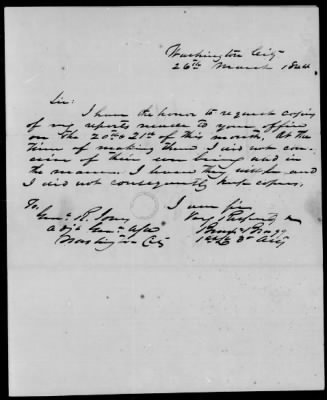 Washington City
26th March 1844
Sir:
I have the honor to request copies
of my reports made to your office
on the 20th & 21st of this month. At the
time of making them I did not con-
ceive of their ever being used in
the manner I learn they will be and
I did not consequently keep copies.
To,
Genl. R. Jones
Adjt Genl. of
Washington City
I am Sir
Very Respectfy
Braxton Bragg
1st Lt 3d Arty